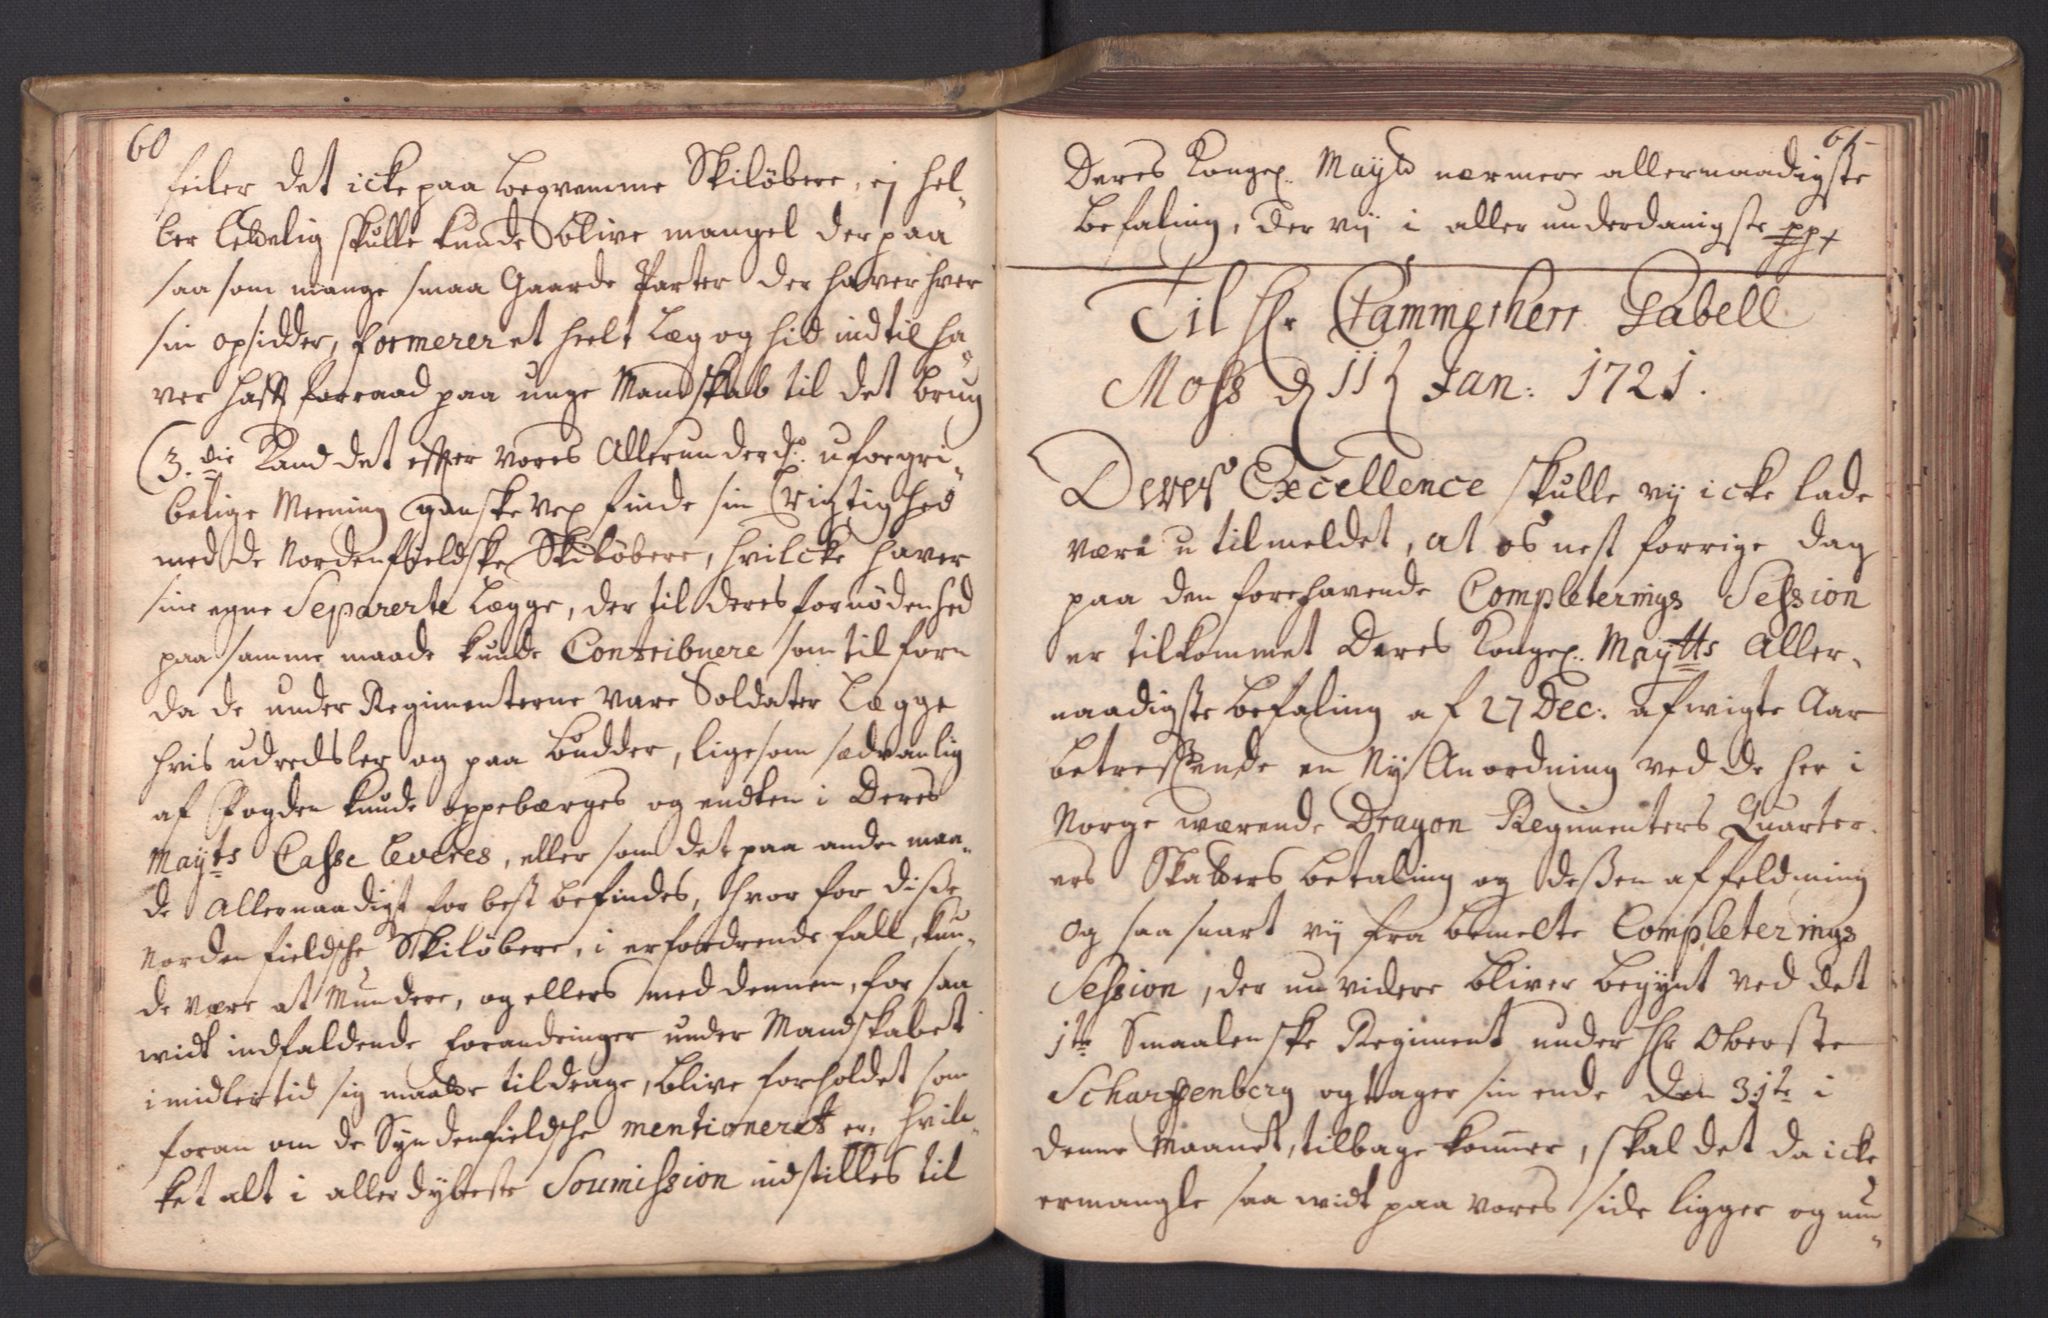 60
feiler det icke paa beqvemme Skilöbere, ej hel-
ler skulle kunde blive mangel derpaa
saa som mange smaa Gaarde Parter der haver hver
sin opsidder, formerer et heelt Læg og hid indtil ha-
ver hafft forraad paa unge Mandskab til det brug
(3.die Kand det effter vores Allerunderd: uforgri-
belige Meening gandske vel finde sin Rigtighed
med de Nordenfieldske Skilöbere, hvilcke haver
sine egne Separerte Lægge, der til deres fornödenhed
paa samme maade kunde Contribuere som tilforn
da de under Regimenterne vare Soldater Lægge
hvis udredsler og paa budder, ligesom sædvanlig
af Fogden kunde oppebærges og endten i Deres
Mayts Casse leveres, eller som det paa anden maa-
de Allernaadigst for best befindes, hvor for disse
Nordenfieldsche Skilöbere, i erfordrende fall, kun-
de være at Mundere, og ellers med dennem, for saa
widt indfaldende forandringer under Mandskabet
imidlertid sig maatte tildrage, blive forholdet som
foran om de Syndenfieldsche mentioneret er, hvil-
ket alt i allerdybeste Soumission indstilles til
61
Deres Kongel. Mayts nærmere allernaadigste
befaling, der vij i aller underdanigste pp
Til Hr Cammerherr Gabell
Moss d 11 Jan: 1721.
Deres Excellence skulle vij icke lade
være u tilmeldet, at os nest forrige dag
paa den forehavende Completerings Session
er tilkommet Deres Kongel. Maytts Aller-
naadigste befaling af 27 Dec: afwigte Aar
betreffende en Ny Anordning ved de her i
Norge wærende Dragon Regimenters Quarter-
ers Skatters betaling og dessen affeldning
og saa snart vij fra bemelte Completerings
Session, der nu videre bliver begynt ved det
1te Smaalenske Regiment under Hr Oberste
Scharffenberg og tager sin ende den 31te i
denne Maanet, tilbage kommer, skal det da icke
ermangle saa widt paa vores side ligger og um-